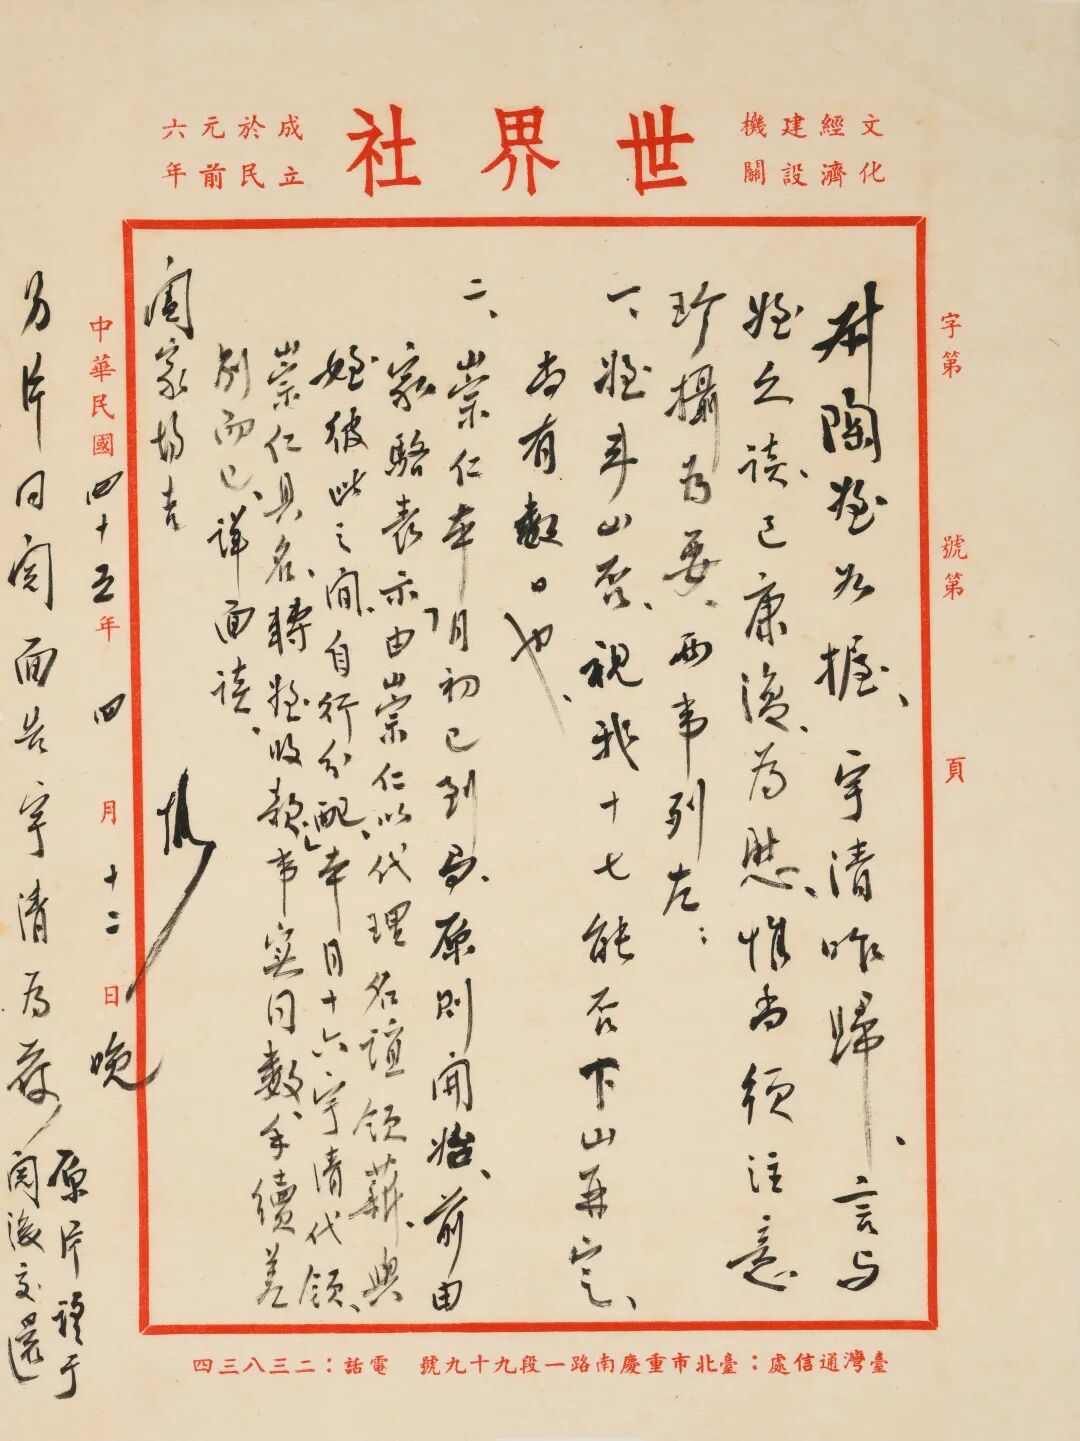 文化經濟建設機關
世界社
成立於民元前六年
字第 號第 頁
陶姪如握、宇清昨歸、言与
姪久談、已康復、為慰、惟尚須注意
珍攝為要、两事列左：
一、姪來山否、視我十七能否下山再定、
尚有數日也、
二、崇仁本「月初已到局、原則開始、前由
家駱表示由崇仁以代理名誼領薪、與
姪彼此之间、自行分配」、本月十六宇清代領、
崇仁具名、轉姪收款、事实同数、手續差
别而已、詳面談、
闔家均吉
煜
中華民國四十五年四月十二日晚
另片同閱面告宇清為荷
原片請于
閱後交還
臺灣通信處：臺北市重慶南路一段九十九號 電話：二三八三四